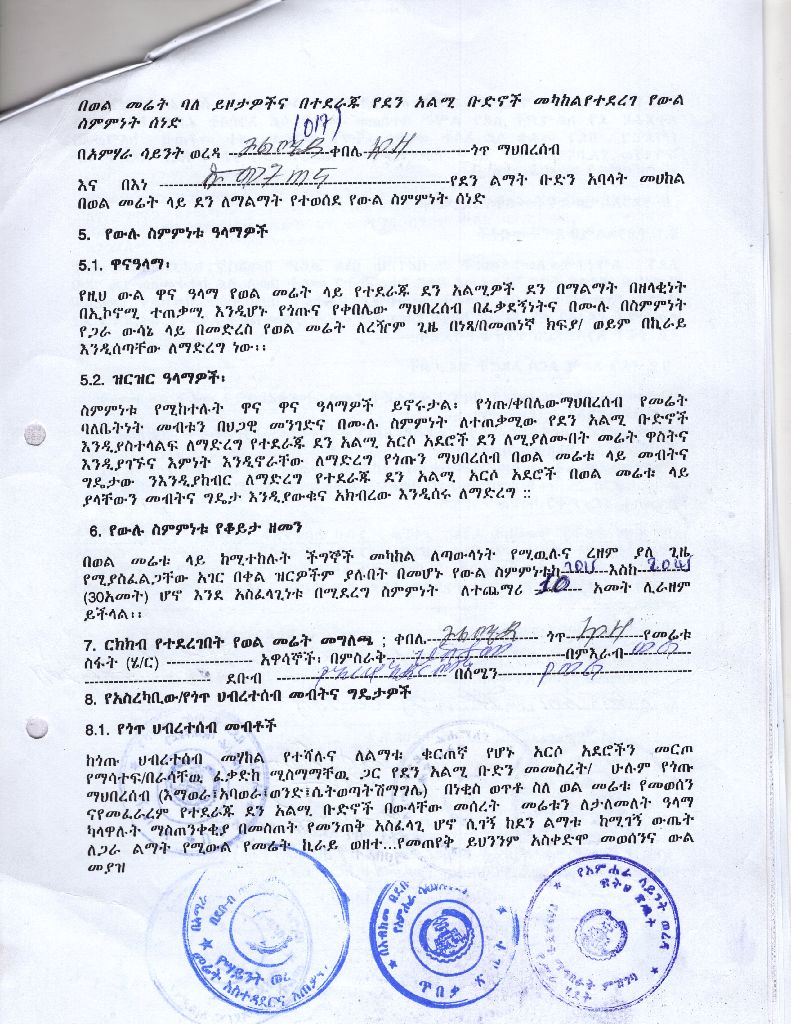 በወል መሬት ባለ ይዞታዎችና በተደራጁ የደን አልሚ ቡድኖች መካከልየተደረገ የውል
ስምምነት ሰነድ
(017)
በአምሃራ ሳይንት ወረዳ ቀበሌ ጎጥ ማህበረሰብ
እና በእነ የደን ልማት ቡድን አባላት መሀከል
በወል መሬት ላይ ደን ለማልማት የተወሰደ የውል ስምምነት ሰነድ
5. የውሉ ስምምነቱ ዓላማዎች
5.1. ዋናዓላማ፡
የዚህ ውል ዋና ዓላማ የወል መሬት ላይ የተደራጁ ደን አልሚዎች ደን በማልማት በዘላቂነት
በኢኮኖሚ ተጠቃሚ እንዲሆኑ የጎጡና የቀበሌው ማህበረሰብ በፈቃደኝነትና በሙሉ በስምምነት
የጋራ ውሳኔ ላይ በመድረስ የወል መሬት ለረዥም ጊዜ በነጻ/በመጠነኛ ክፍያ/ ወይም በኪራይ
እንዲሰጣቸው ለማድረግ ነው፡፡
5.2. ዝርዝር ዓላማዎች፡
ስምምነቱ የሚከተሉት ዋና ዋና ዓላማዎች ይኖሩታል፡ የጎጡ/ቀበሌውማህበረሰብ የመሬት
ባለቤትነት መብቱን በህጋዊ መንገድና በሙሉ ስምምነት ለተጠቃሚው የደን አልሚ ቡድኖች
እንዲያስተላልፍ ለማድረግ የተደራጁ ደን አልሚ አርሶ አደሮች ደን ለሚያለሙበት መሬት ዋስትና
እንዲያገኙና እምነት እንዲኖራቸው ለማድረግ የጎጡን ማህበረሰብ በወል መሬቱ ላይ መብትና
ግዴታው ንእንዲያከብር ለማድረግ የተደራጁ ደን አልሚ አርሶ አደሮች በወል መሬቱ ላይ
ያላቸውን መብትና ግዴታ እንዲያውቁና አክብረው እንዲሰሩ ለማድረግ ::
6. የውሉ ስምምነቱ የቆይታ ዘመን
በወል መሬቱ ላይ ከሚተከሉት ችግኞች መካከል ለጣውላነት የሚዉሉና ረዘም ያለ ጊዜ
የሚያስፈልጋቸው አገር በቀል ዝርዎችም ያሉበት በመሆኑ የውል ስምምነቱከ እስከ
(30አመት) ሆኖ እንደ አስፈላጊነቱ በሚደረግ ስምምነት ለተጨማሪ 10 አመት ሊራዘም
ይችላል፡፡
7. ርክክብ የተደረገበት የወል መሬት መግለጫ ; ቀበሌ ጎጥ የመሬቱ
ስፋት (ሄ/ር) አዋሳኞች፡ በምስራቅ በምእራብ
ደቡብ በሰሜን
8. የአስረካቢው/የጎጥ ህብረተሰብ መብትና ግዴታዎች
8.1. የጎጥ ህብረተሰብ መብቶች
ከጎጡ ህብረተሰብ መሃከል የተሻሉና ለልማቱ ቁርጠኛ የሆኑ አርሶ አደሮችን መርጦ
የማሳተፍ/በራሳቸዉ ፈቃድከ ሚስማማቸዉ ጋር የደን አልሚ ቡድን መመስረት/ ሁሉም የጎጡ
ማህበረሰብ (እማወራ፣አባወራ፣ወንድ፣ሴትወጣትሽማግሌ) በነቂስ ወጥቶ ስለ ወል መሬቱ የመወሰን
ናየመፈራረም የተደራጁ ደን አልሚ ቡድኖች በውላቸው መሰረት መሬቱን ለታለመለት ዓላማ
ካላዋሉት ማስጠንቀቂያ በመስጠት የመንጠቅ አስፈላጊ ሆኖ ሲገኝ ከደን ልማቱ ከሚገኝ ውጤት
ለጋራ ልማት የሚውል የመሬት ኪራይ ወዘተ...የመጠየቅ ይህንንም አስቀድሞ መወሰንና ውል
መያዝ
የሣይንት ወረ
ጥበቃ ጽ ቤት
የአምሐራ ሳይንት ወረዳ
ፍትህ ጽ/ቤት